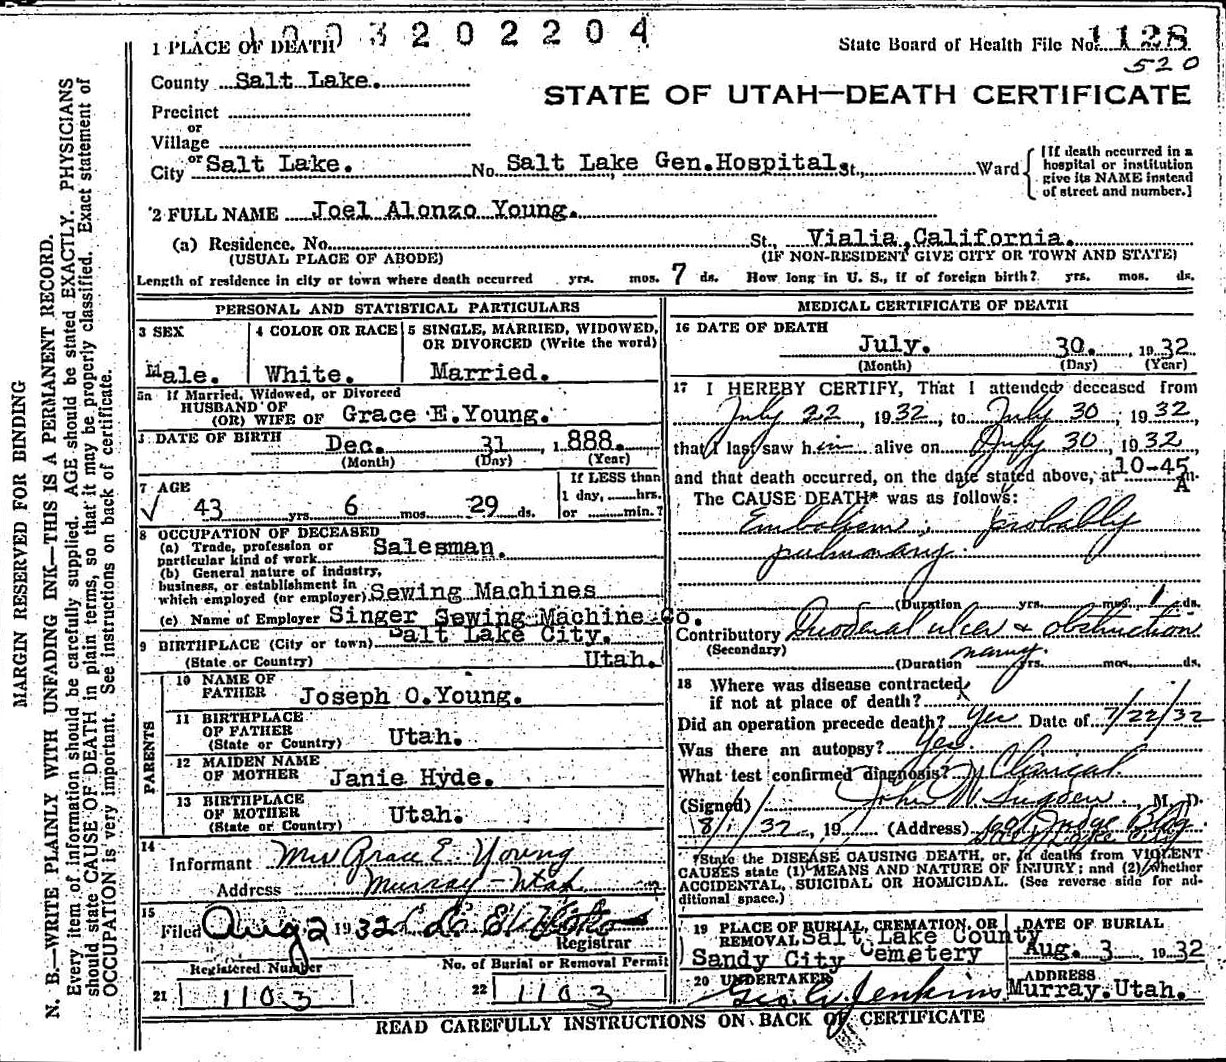 1003202204
State Board of Health File No. 1128
520
1 PLACE OF DEATH
County Salt Lake.
STATE OF UTAH—DEATH CERTIFICATE
Precinct
or
Village
or
City Salt Lake. No. Salt Lake Gen. Hospital. St., Ward
[If death occurred in a hospital or institution give its NAME instead of street and number.]
2 FULL NAME Joel Alonzo Young.
(a) Residence. No. St., Vialia, California.
(USUAL PLACE OF ABODE) (IF NON-RESIDENT GIVE CITY OR TOWN AND STATE)
Length of residence in city or town where death occurred yrs. mos. 7 ds. How long in U. S., if of foreign birth? yrs. mos. ds.
PERSONAL AND STATISTICAL PARTICULARS
3 SEX
Male.
4 COLOR OR RACE
White.
5 SINGLE, MARRIED, WIDOWED,
OR DIVORCED (Write the word)
Married.
5a If Married, Widowed, or Divorced
HUSBAND OF
(OR) WIFE OF Grace E. Young.
DATE OF BIRTH Dec. 31, 1888.
(Month) (Day) (Year)
7 AGE
√ 43 yrs. 6 mos. 29 ds.
If LESS than
1 day, hrs.
or min.?
8 OCCUPATION OF DECEASED
(a) Trade, profession or
particular kind of work Salesman.
(b) General nature of industry,
business, or establishment in
which employed (or employer) Sewing Machines
(c) Name of Employer Singer Sewing Machine Co.
9 BIRTHPLACE (City or town) Salt Lake City.
(State or Country) Utah.
PARENTS
10 NAME OF
FATHER Joseph O. Young.
11 BIRTHPLACE
OF FATHER
(State or Country) Utah.
12 MAIDEN NAME
OF MOTHER Janie Hyde.
13 BIRTHPLACE
OF MOTHER
(State or Country) Utah.
14
Informant Mrs Grace E. Young
Address Murray - Utah
15
Filed Aug 2 1932
Registrar
Registered Number
21 1103
No. of Burial or Removal Permit
22 1103
MEDICAL CERTIFICATE OF DEATH
16 DATE OF DEATH
July. 30., 1932
(Month) (Day) (Year)
17 I HEREBY CERTIFY, That I attended deceased from
July 22, 1932, to July 30, 1932
that I last saw him alive on July 30, 1932
and that death occurred, on the date stated above, at 10-45 A m.
The CAUSE DEATH* was as follows:
Embolism; probably
pulmonary.
(Duration yrs. mos. 1 ds.
Contributory Duodenal ulcer & obstruction
(Secondary)
(Duration many yrs. mos. ds.
18 Where was disease contracted
if not at place of death?
Did an operation precede death? Yes Date of 7/22/32
Was there an autopsy? Yes.
What test confirmed diagnosis? Clinical
(Signed) John W. Sugden M. D.
8/1/32, 19 (Address) 601 Judge Bldg.
Salt Lake City
*State the DISEASE CAUSING DEATH, or, in deaths from VIOLENT
CAUSES state (1) MEANS AND NATURE OF INJURY; and (2) whether
ACCIDENTAL, SUICIDAL OR HOMICIDAL. (See reverse side for additional space.)
19 PLACE OF BURIAL, CREMATION, OR
REMOVAL Salt Lake County
Sandy City Cemetery
DATE OF BURIAL
Aug. 3, 1932
20 UNDERTAKER
Geo. W. Jenkins
ADDRESS
Murray. Utah.
READ CAREFULLY INSTRUCTIONS ON BACK OF CERTIFICATE
MARGIN RESERVED FOR BINDING
N. B.—WRITE PLAINLY WITH UNFADING INK—THIS IS A PERMANENT RECORD.
Every item of information should be carefully supplied. AGE should be stated EXACTLY. PHYSICIANS
should state CAUSE OF DEATH in plain terms, so that it may be properly classified. Exact statement of
OCCUPATION is very important. See instructions on back of certificate.